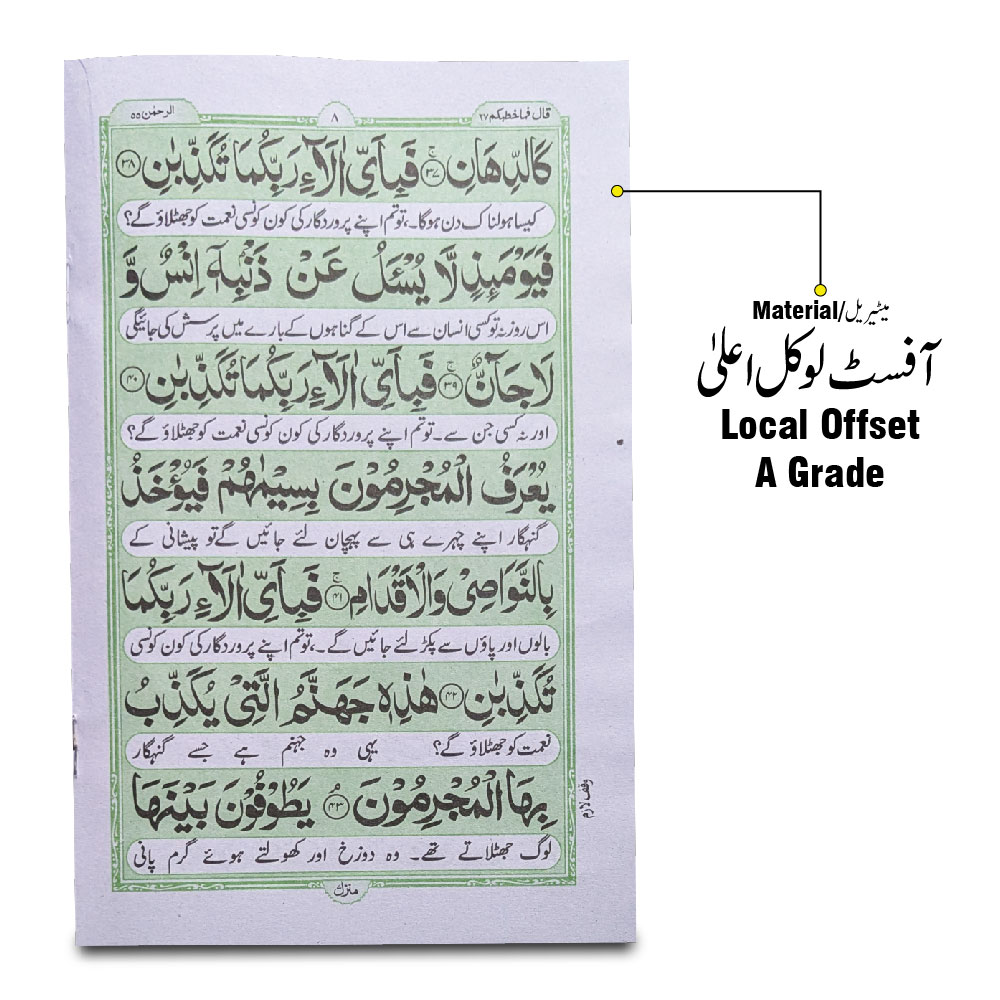 قال فما خطبکم ۲۷
۸
الرحمٰن ۵۵
كَالدِّهَانِ ۚ﴿۳۷﴾ فَبِاَيِّ اٰلَآءِ رَبِّكُمَا تُكَذِّبٰنِ ﴿۳۸﴾
کیسا ہولناک دن ہوگا۔، تو تم اپنے پروردگار کی کون کونسی نعمت کو جھٹلاؤ گے؟
فَيَوْمَئِذٍ لَّا يُسْـَٔلُ عَنْ ذَنْۢبِهٖٓ اِنْسٌ وَّ
اس روز نہ تو کسی انسان سے اس کے گناہوں کے بارے میں پرسش کی جائیگی
لَا جَآنٌّ ۚ﴿۳۹﴾ فَبِاَيِّ اٰلَآءِ رَبِّكُمَا تُكَذِّبٰنِ ﴿۴۰﴾
اور نہ کسی جن سے۔ تو تم اپنے پروردگار کی کون کونسی نعمت کو جھٹلاؤ گے؟
يُعْرَفُ الْمُجْرِمُوْنَ بِسِيْمٰهُمْ فَيُؤْخَذُ
گنہگار اپنے چہرے ہی سے پہچان لئے جائیں گے تو پیشانی کے
بِالنَّوَاصِيْ وَالْاَقْدَامِ ۚ﴿۴۱﴾ فَبِاَيِّ اٰلَآءِ رَبِّكُمَا
بالوں اور پاؤں سے پکڑ لئے جائیں گے۔، تو تم اپنے پروردگار کی کون کونسی
تُكَذِّبٰنِ ﴿۴۲﴾ هٰذِهٖ جَهَنَّمُ الَّتِيْ يُكَذِّبُ
نعمت کو جھٹلاؤ گے؟ یہی وہ جہنم ہے جسے گنہگار
بِهَا الْمُجْرِمُوْنَ ۘ﴿۴۳﴾ يَطُوْفُوْنَ بَيْنَهَا
وقف لازم
لوگ جھٹلاتے تھے۔ وہ دوزخ اور کھولتے ہوئے گرم پانی
منزل
Material/میٹیریل
آفسٹ لوکل اعلیٰ
Local Offset
A Grade